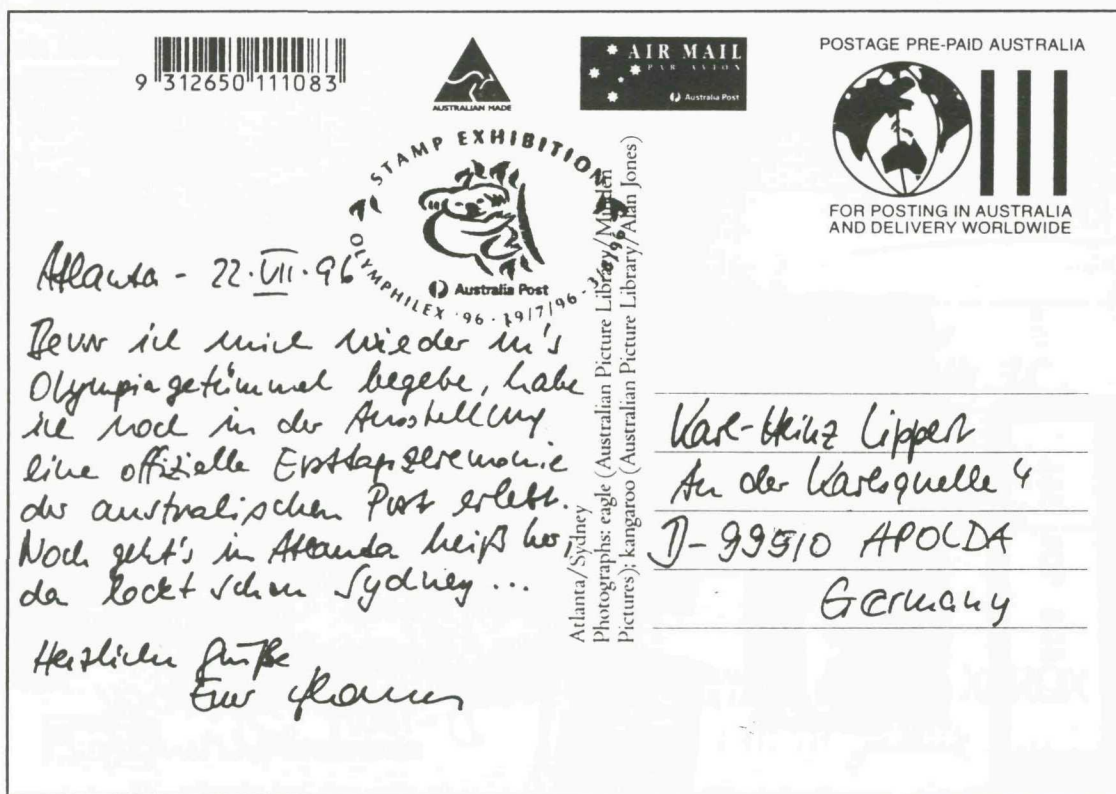 9 312650 111083
AUSTRALIAN MADE
AIR MAIL
PAR AVION
Australia Post
POSTAGE PRE-PAID AUSTRALIA
FOR POSTING IN AUSTRALIA
AND DELIVERY WORLDWIDE
STAMP EXHIBITION
Australia Post
OLYMPHILEX '96 - 19/7/96 - 3/8/96
Atlanta - 22.VII.96
Bevor ich mich wieder in's
Olympiagetümmel begebe, habe
ich noch in der Ausstellung
eine offizielle Ersttagszeremonie
der australischen Post erlebt.
Noch geht's in Atlanta heiß her,
da lockt schon Sydney ...
Herzliche Grüße
Euer
Atlanta/Sydney
Photographs: eagle (Australian Picture Library/Minden
Pictures); kangaroo (Australian Picture Library/Alan Jones)
Karl-Heinz Lippert
An der Karlsquelle 4
D-99510 APOLDA
Germany